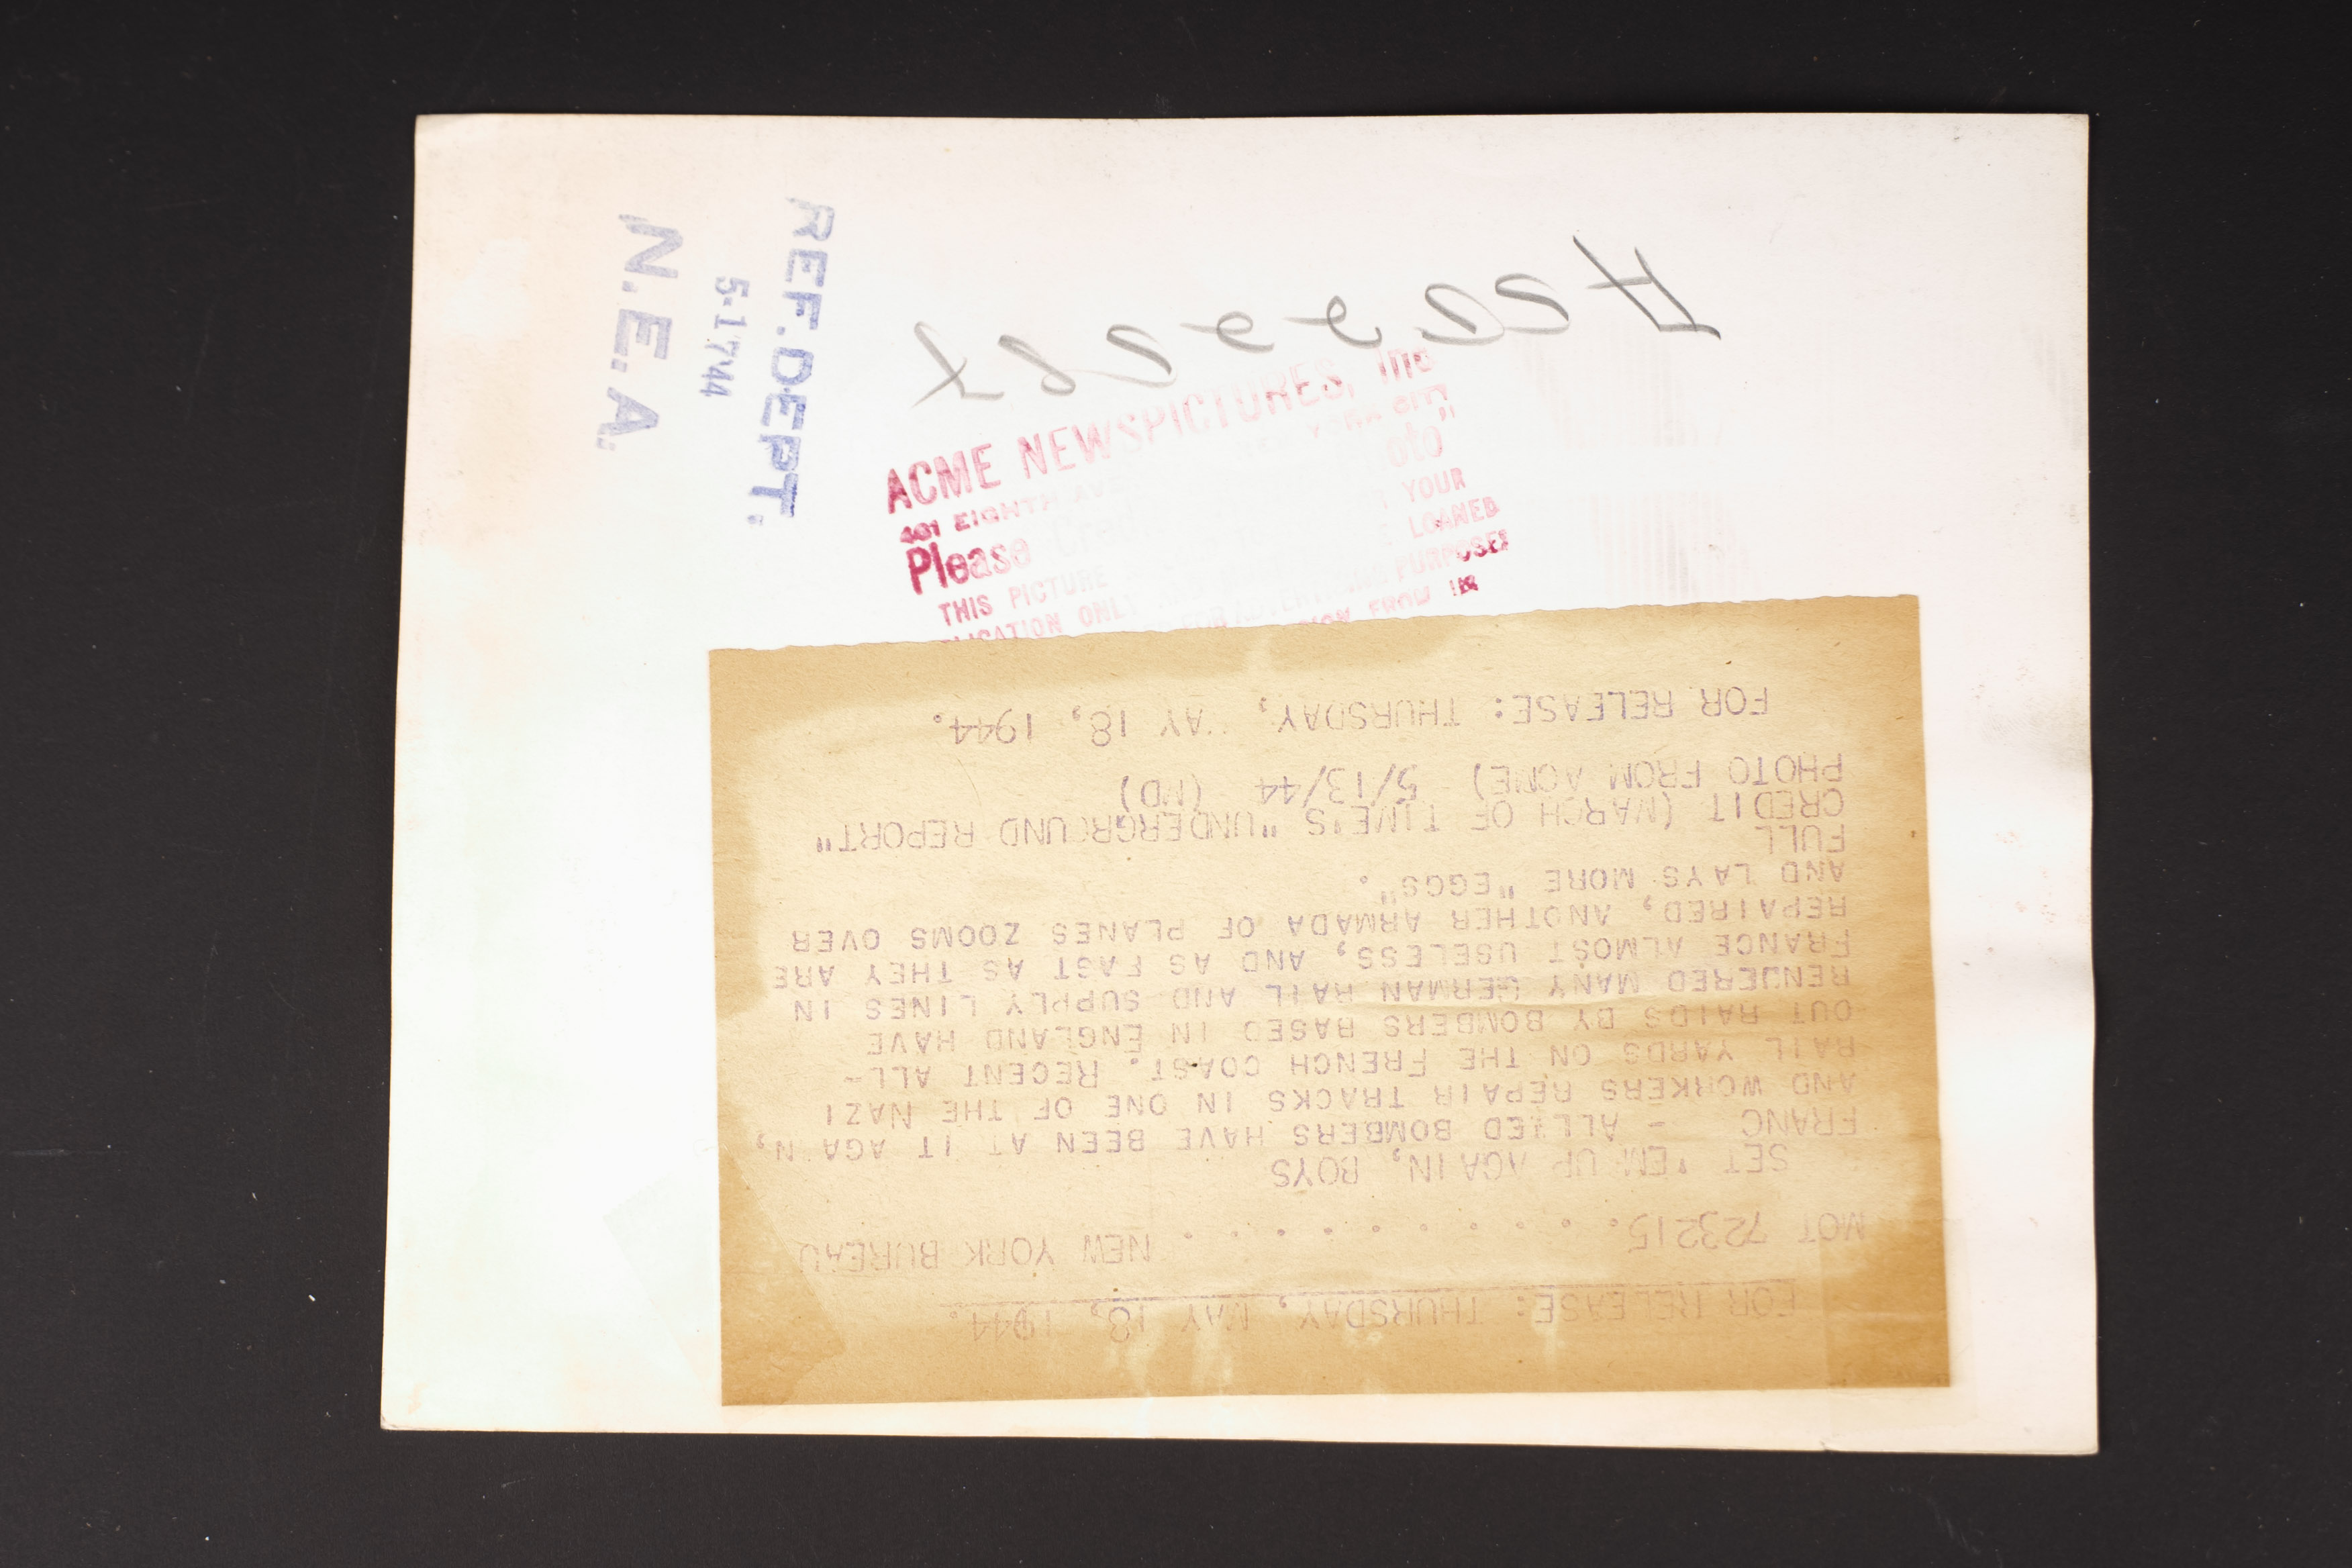 REF. DEPT.
5-17'44
N.E.A.
ACME NEWSPICTURES, Inc
461 EIGHTH AVE NEW YORK CITY
Please Credit oto"
THIS PICTURE YOUR
LICATION ONLY LOANED
FOR ADVERT PURPOSES
FROM
FOR RELEASE: THURSDAY, MAY 18, 1944.
MOT 723215. . . . . . . . . . . NEW YORK BUREAU
SET 'EM UP AGAIN, BOYS
FRANC - ALLIED BOMBERS HAVE BEEN AT IT AGA N,
AND WORKERS REPAIR TRACKS IN ONE OF THE NAZI
RAIL YARDS ON THE FRENCH COAST. RECENT ALL-
OUT RAIDS BY BOMBERS BASED IN ENGLAND HAVE
RENDERED MANY GERMAN RAIL AND SUPPLY LINES IN
FRANCE ALMOST USELESS, AND AS FAST AS THEY ARE
REPAIRED, ANOTHER ARMADA OF PLANES ZOOMS OVER
AND LAYS MORE "EGGS".
FULL
CREDIT (MARCH OF TIME'S "UNDERGROUND REPORT"
PHOTO FROM ACME) 5/13/44 (MD)
FOR RELEASE: THURSDAY, AY 18, 1944.